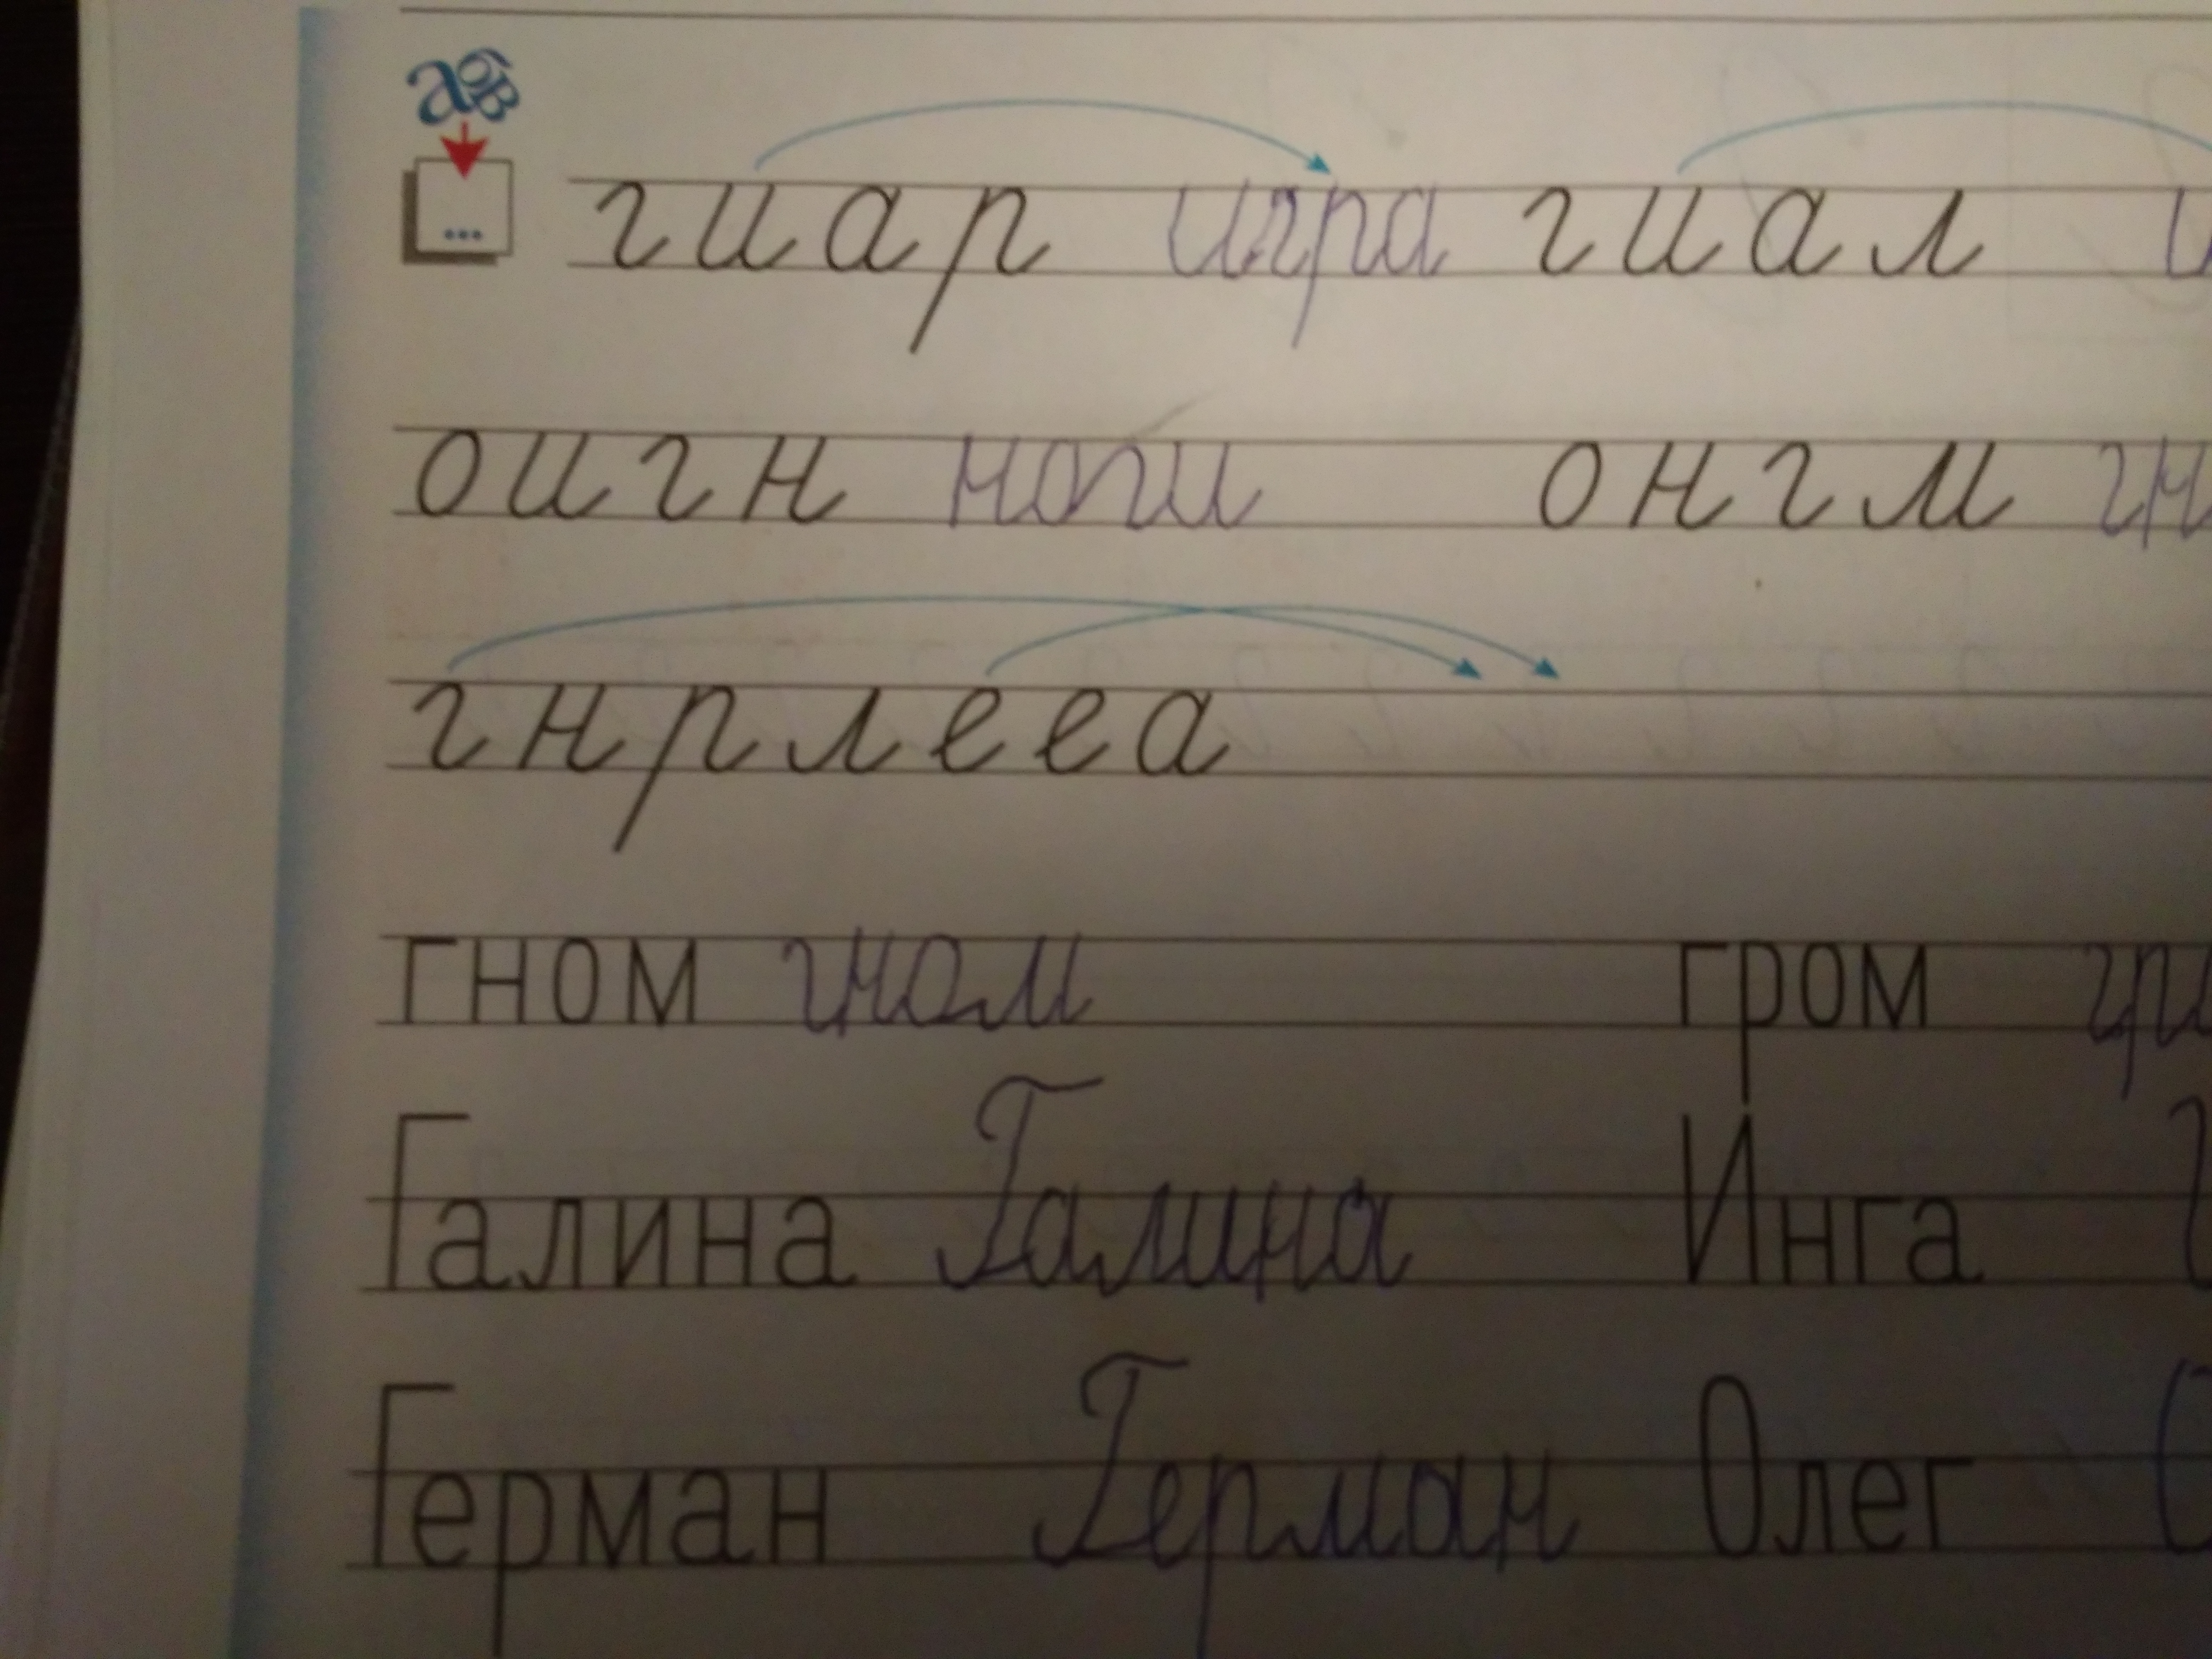 абв
...
гиар игра гиал
оигн ноги онгм
гнрлееа
гном гном гром
Галина Галина Инга
Герман Герман Олег